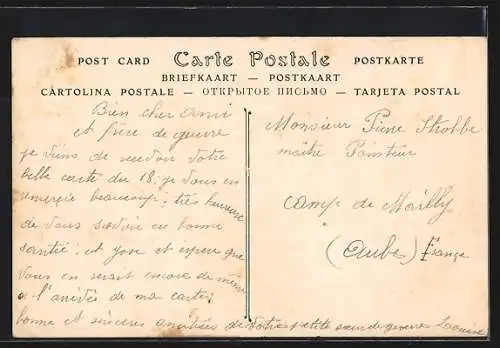 POST CARD Carte Postale POSTKARTE
BRIEFKAART — POSTKAART
CARTOLINA POSTALE — ОТКРЫТОЕ ПИСЬМО — TARJETA POSTAL
Bien cher ami
et frère de guerre
je viens de recevoir votre
belle carte du 18; je vous en
remercie beaucoup; très heureuse
de vous savoir en bonne
santié; et j'ose et espere que
vous en serait encore de meme
a l'arivée de ma carte;
bonne et sincères amitiées de votre petite sœur de guerre Louise
Monsieur Pierre Strobbe
maître Pointeur
Camp de Mailly
(Aube) France